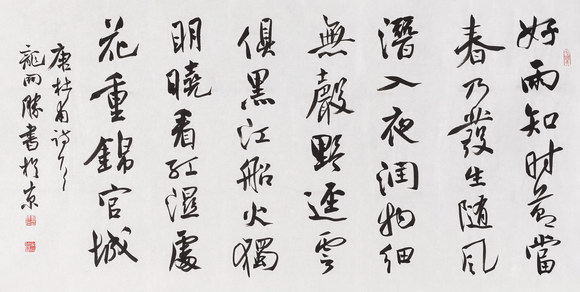 好雨知时節當
春乃發生随风
潛入夜润物细
無聲野逕雲
俱黑江船火獨
明曉看红濕處
花重錦官城
唐杜甫诗
龍雨勝書於京